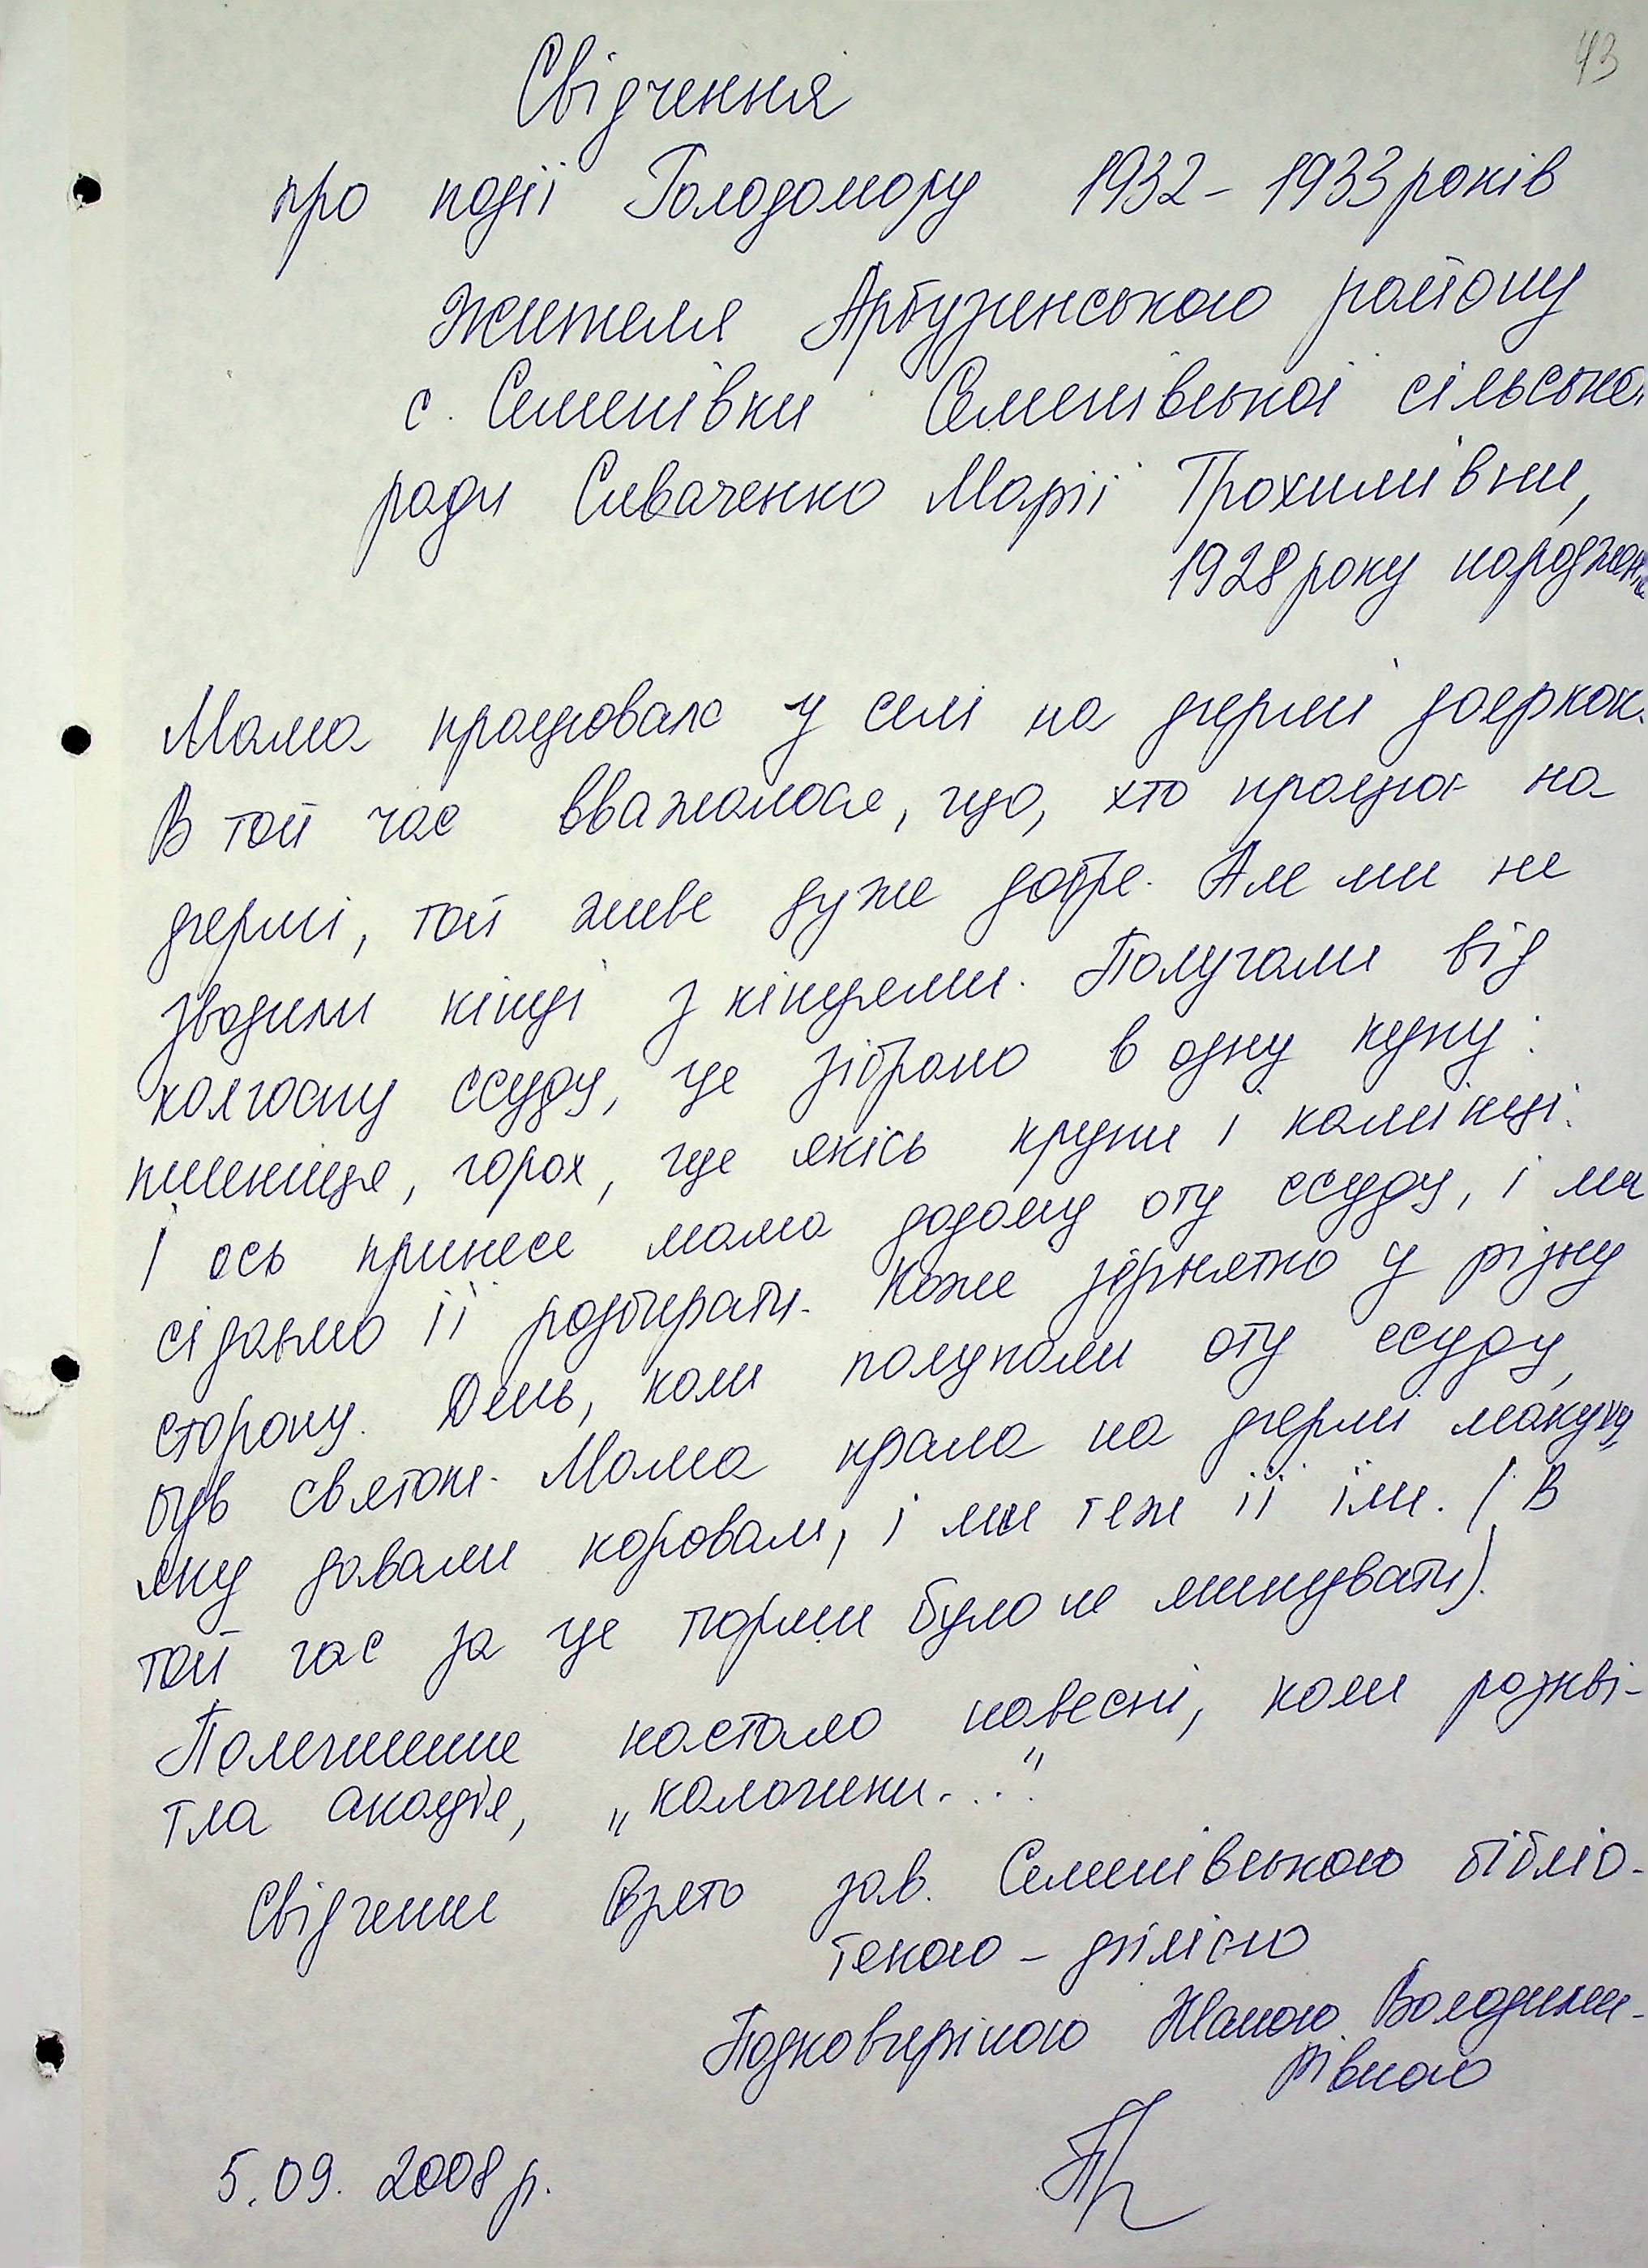 43
Свідчення
про події Голодомору 1932-1933 років
жителя Арбузинського району
с. Семенівки Семенівської сільської
ради Сиваченко Марії Трохимівни,
1928 року народження
Мама працювала у селі на фермі дояркою.
В той час вважалося, що, хто працює на
фермі, той живе дуже добре. Але ми не
зводили кінці з кінцями. Получали від
колгоспу ссуду, це зібрано в одну купу:
пшениця, горох, ще якісь крупи і камінці.
І ось принесе мама додому оту ссуду, і ми
сідаємо її розбирати. Кожне зернятко у різну
сторону. День, коли получали оту ссуду,
був святом. Мама крала на фермі макуху,
яку давали коровам, і ми теж її їли. (В
той час за це тюрми було не минувати).
Полегшення настало навесні, коли розкві-
тла акація, „калачики..."
Свідчення взято зав. Семенівською бібліо-
текою-філією
Подковиріною Жаною Володими-
рівною
5.09.2008 р.